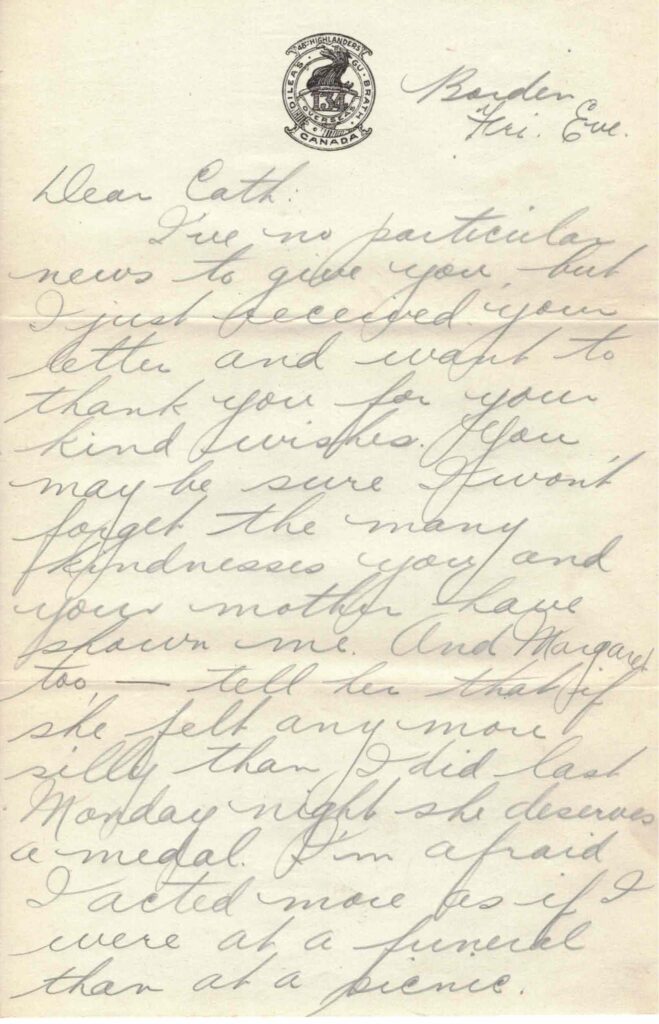 48TH HIGHLANDERS
DILEAS GU BRATH
134
OVERSEAS
CANADA
Borden
Fri. Eve.
Dear Cath:
I've no particular
news to give you, but
I just received your
letter and want to
thank you for your
kind wishes. You
may be sure I won't
forget the many
kindnesses you and
your mother have
shown me. And Margaret
too, — tell her that if
she felt any more
silly than I did last
Monday night she deserves
a medal. I'm afraid
I acted more as if I
were at a funeral
than at a picnic.